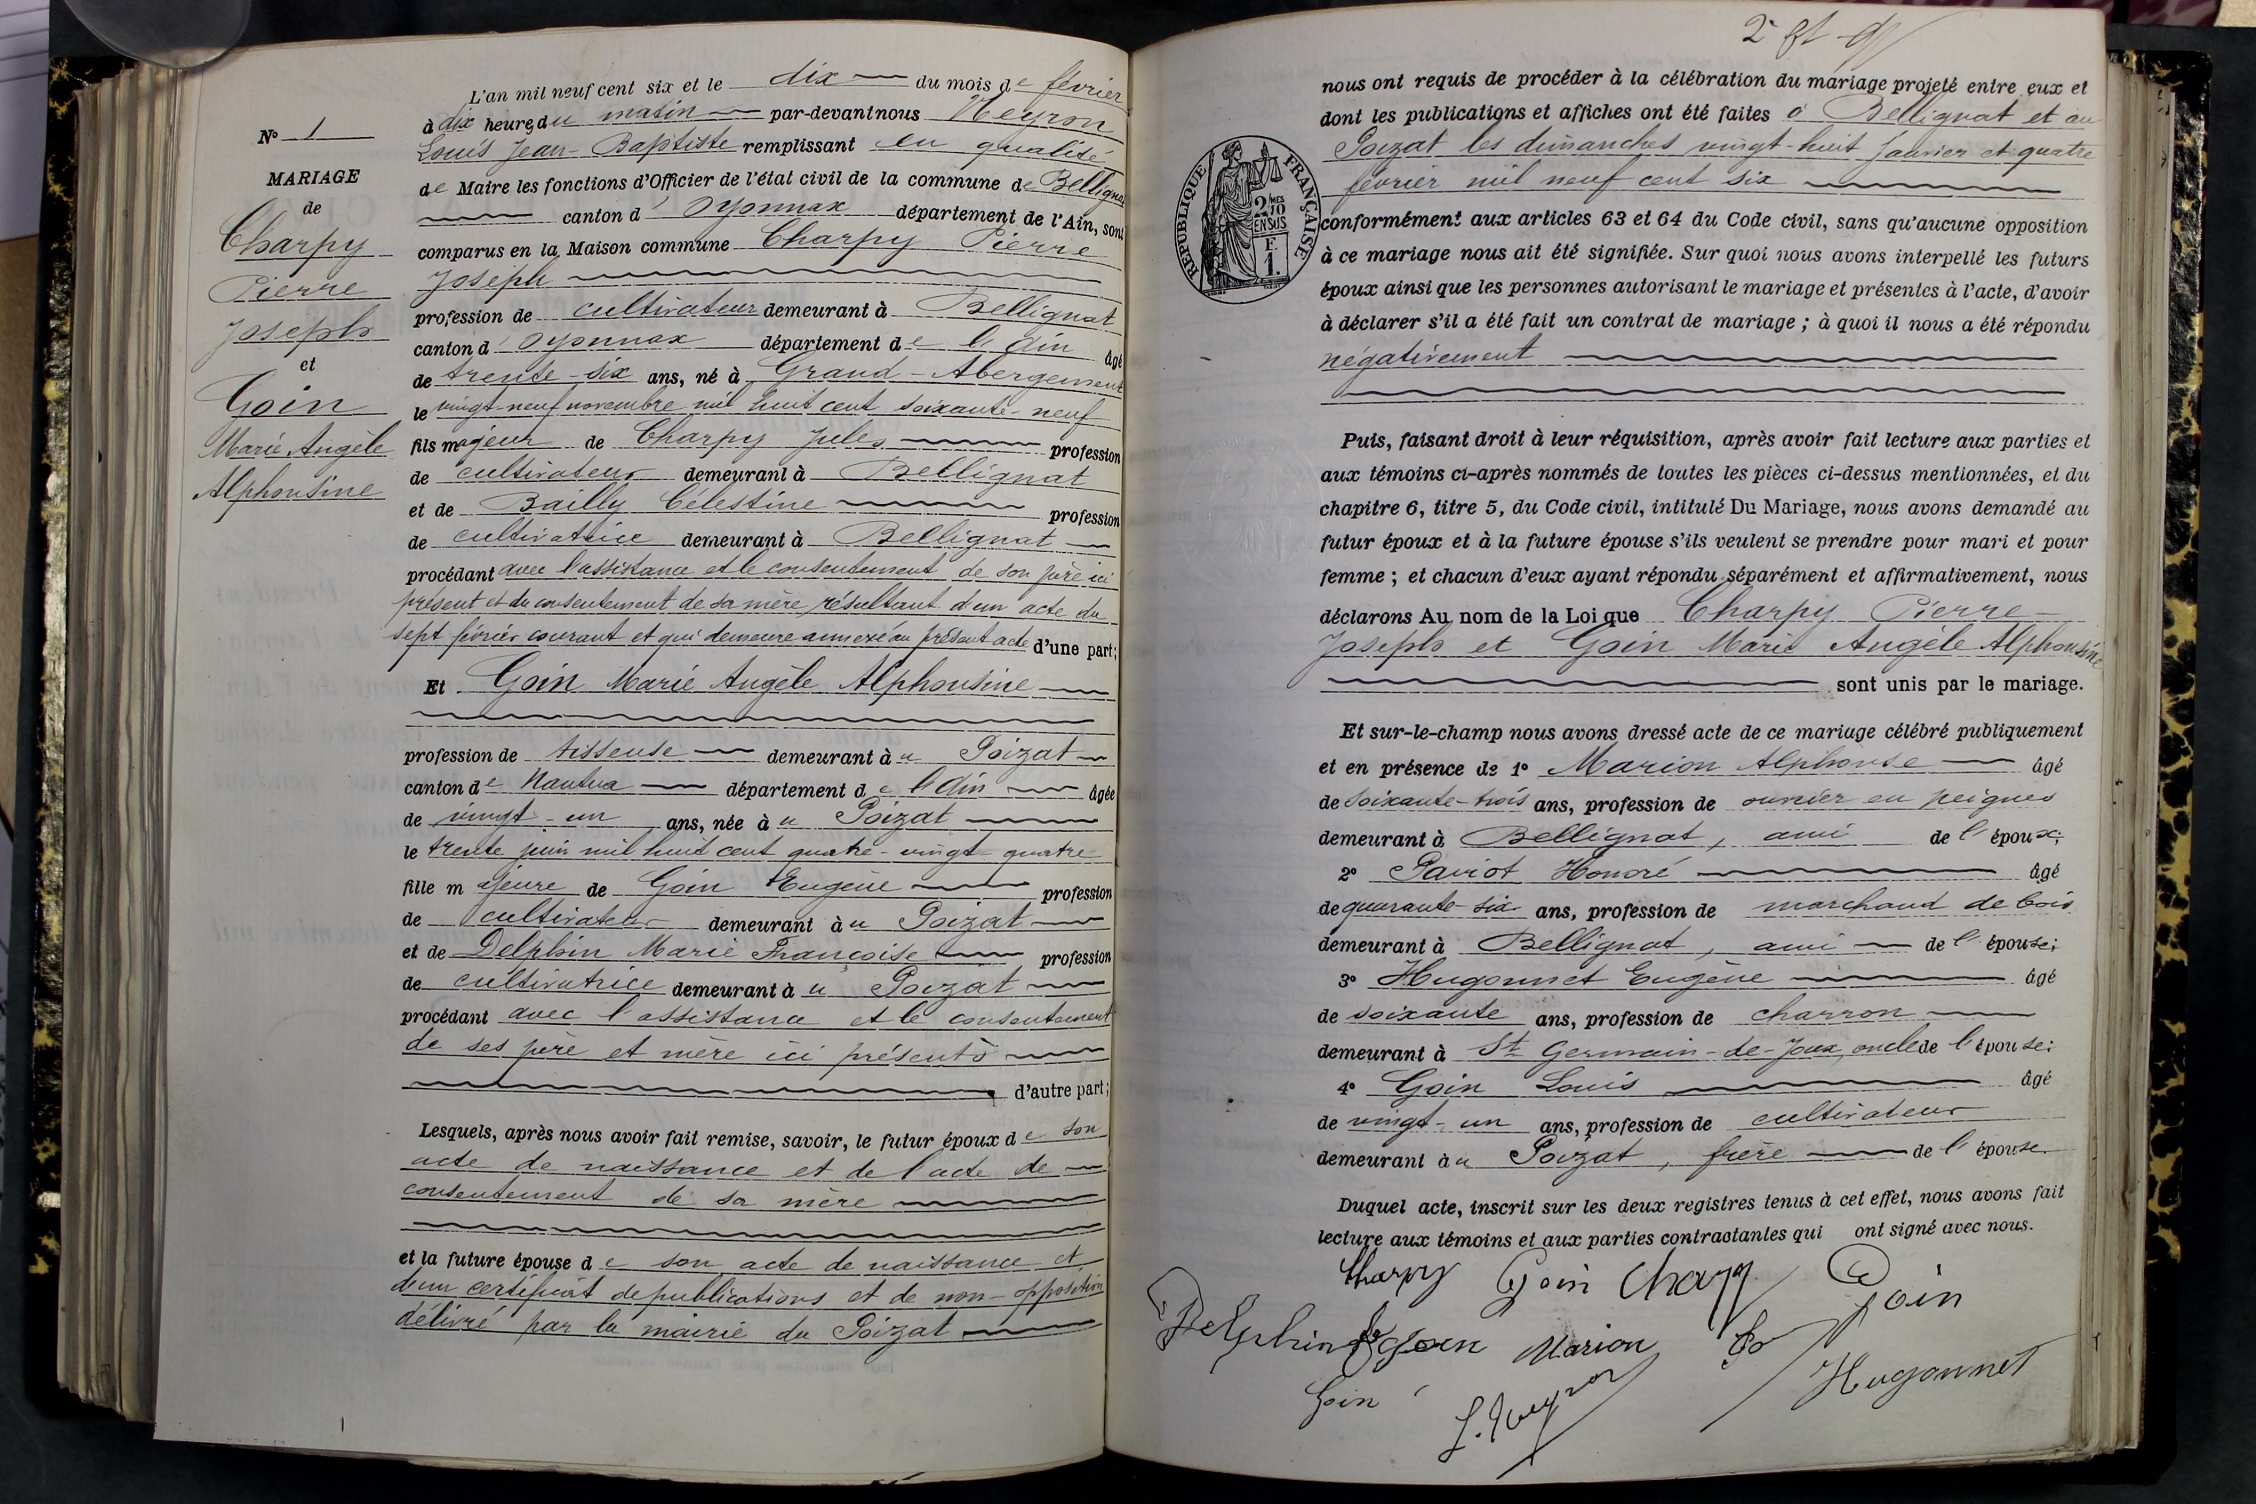 N° 1
MARIAGE
de
Charpy
Pierre
Joseph
et
Goin
Marie Angèle
Alphonsine
L'an mil neuf cent six et le dix du mois de février
à dix heures du matin par-devant nous Neyron
Louis Jean-Baptiste remplissant en qualité
de Maire les fonctions d'Officier de l'état civil de la commune de Bellignat
canton d'Oyonnax département de l'Ain, sont
comparus en la Maison commune Charpy Pierre
Joseph
profession de cultivateur demeurant à Bellignat
canton d'Oyonnax département de l'Ain âgé
de trente-six ans, né à Grand-Abergement
le vingt-neuf novembre mil huit cent soixante-neuf
fils majeur de Charpy Jules profession
de cultivateur demeurant à Bellignat
et de Bailly Célestine profession
de cultivatrice demeurant à Bellignat
procédant avec l'assistance et le consentement de son père ici
présent et du consentement de sa mère, résultant d'un acte du
sept février courant et qui demeure annexé au présent acte d'une part;
Et Goin Marie Angèle Alphonsine
profession de tisseuse demeurant à u Poizat
canton de Nantua département de l'Ain âgée
de vingt-un ans, née à u Poizat
le trente juin mil huit cent quatre-vingt-quatre
fille majeure de Goin Eugène profession
de cultivateur demeurant à u Poizat
et de Delphin Marie Françoise profession
de cultivatrice demeurant à u Poizat
procédant avec l'assistance et le consentement
de ses père et mère ici présents
d'autre part;
Lesquels, après nous avoir fait remise, savoir, le futur époux de son
acte de naissance et de l'acte de
consentement de sa mère
et la future épouse de son acte de naissance et
d'un certificat de publications et de non-opposition
délivré par la mairie du Poizat
nous ont requis de procéder à la célébration du mariage projeté entre eux et
dont les publications et affiches ont été faites à Bellignat et au
Poizat les dimanches vingt-huit janvier et quatre
février mil neuf cent six
RÉPUBLIQUE FRANÇAISE
2/10MES
EN SUS
F.
1.
conformément aux articles 63 et 64 du Code civil, sans qu'aucune opposition
à ce mariage nous ait été signifiée. Sur quoi nous avons interpellé les futurs
époux ainsi que les personnes autorisant le mariage et présentes à l'acte, d'avoir
à déclarer s'il a été fait un contrat de mariage; à quoi il nous a été répondu
négativement
Puis, faisant droit à leur réquisition, après avoir fait lecture aux parties et
aux témoins ci-après nommés de toutes les pièces ci-dessus mentionnées, et du
chapitre 6, titre 5, du Code civil, intitulé Du Mariage, nous avons demandé au
futur époux et à la future épouse s'ils veulent se prendre pour mari et pour
femme; et chacun d'eux ayant répondu séparément et affirmativement, nous
déclarons Au nom de la Loi que Charpy Pierre
Joseph et Goin Marie Angèle Alphonsine
sont unis par le mariage.
Et sur-le-champ nous avons dressé acte de ce mariage célébré publiquement
et en présence de 1° Marion Alphonse âgé
de soixante-trois ans, profession de ouvrier en peignes
demeurant à Bellignat, ami de l'époux;
2° Paviot Honoré âgé
de quarante-six ans, profession de marchand de bois
demeurant à Bellignat, ami de l'épouse;
3° Hugonnet Eugène âgé
de soixante ans, profession de charron
demeurant à St Germain-de-Joux, oncle de l'épouse;
4° Goin Louis âgé
de vingt-un ans, profession de cultivateur
demeurant à u Poizat, frère de l'épouse
Duquel acte, inscrit sur les deux registres tenus à cet effet, nous avons fait
lecture aux témoins et aux parties contractantes qui ont signé avec nous.
Charpy Goin Charpy Goin
Delphin fe goin Marion
Hugonnet
Goin
L. Neyron